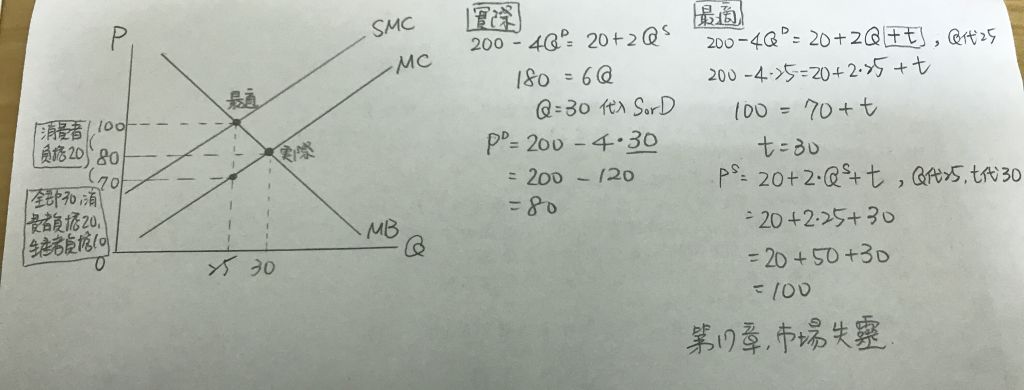 P
SMC
MC
最適
實際
100
80
70
消費者
負擔20
全部30,消
費者負擔20,
生產者負擔10
0
25
30
MB
Q
實際
200-4Qᴰ=20+2Qˢ
180=6Q
Q=30 代入 S or D
Pᴰ=200-4·30
=200-120
=80
最適
200-4Qᴰ=20+2Q+t, Q代25
200-4·25=20+2·25+t
100=70+t
t=30
Pˢ=20+2·Qˢ+t, Q代25,t代30
=20+2·25+30
=20+50+30
=100
第17章,市場失靈.